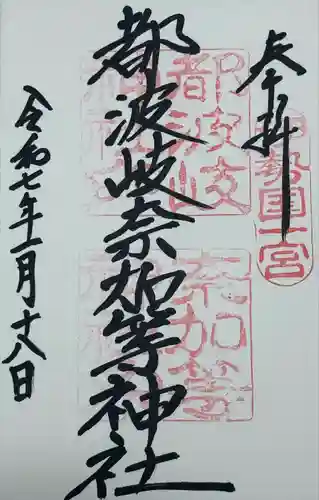 奉拝
伊勢国一宮
都波岐奈加等神社
都波岐
奈加等
令和七年一月十八日